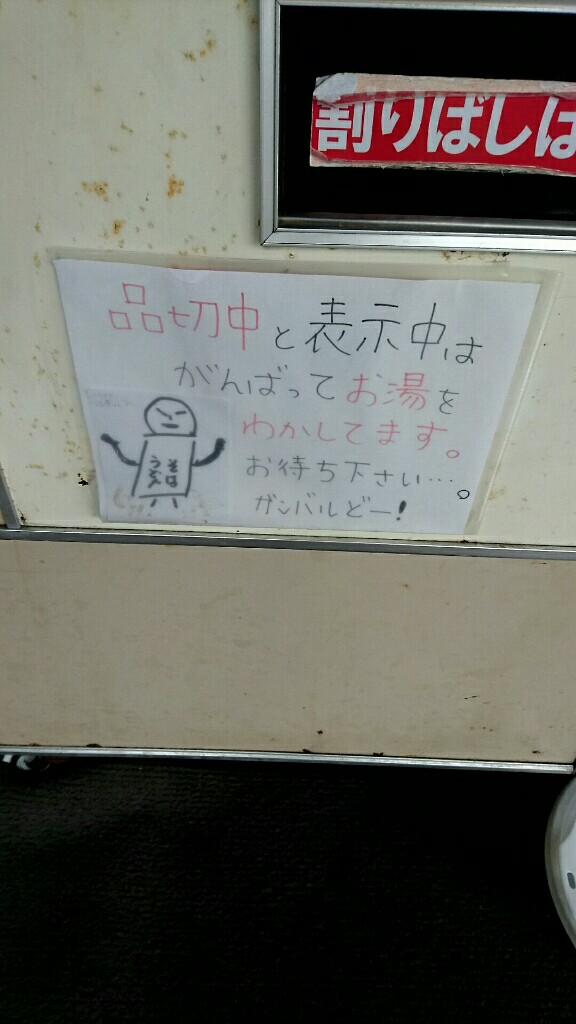 割りばしは
品切中と表示中は
がんばってお湯を
わかしてます。
お待ち下さい…。
ガンバルどー!
そば
うどん